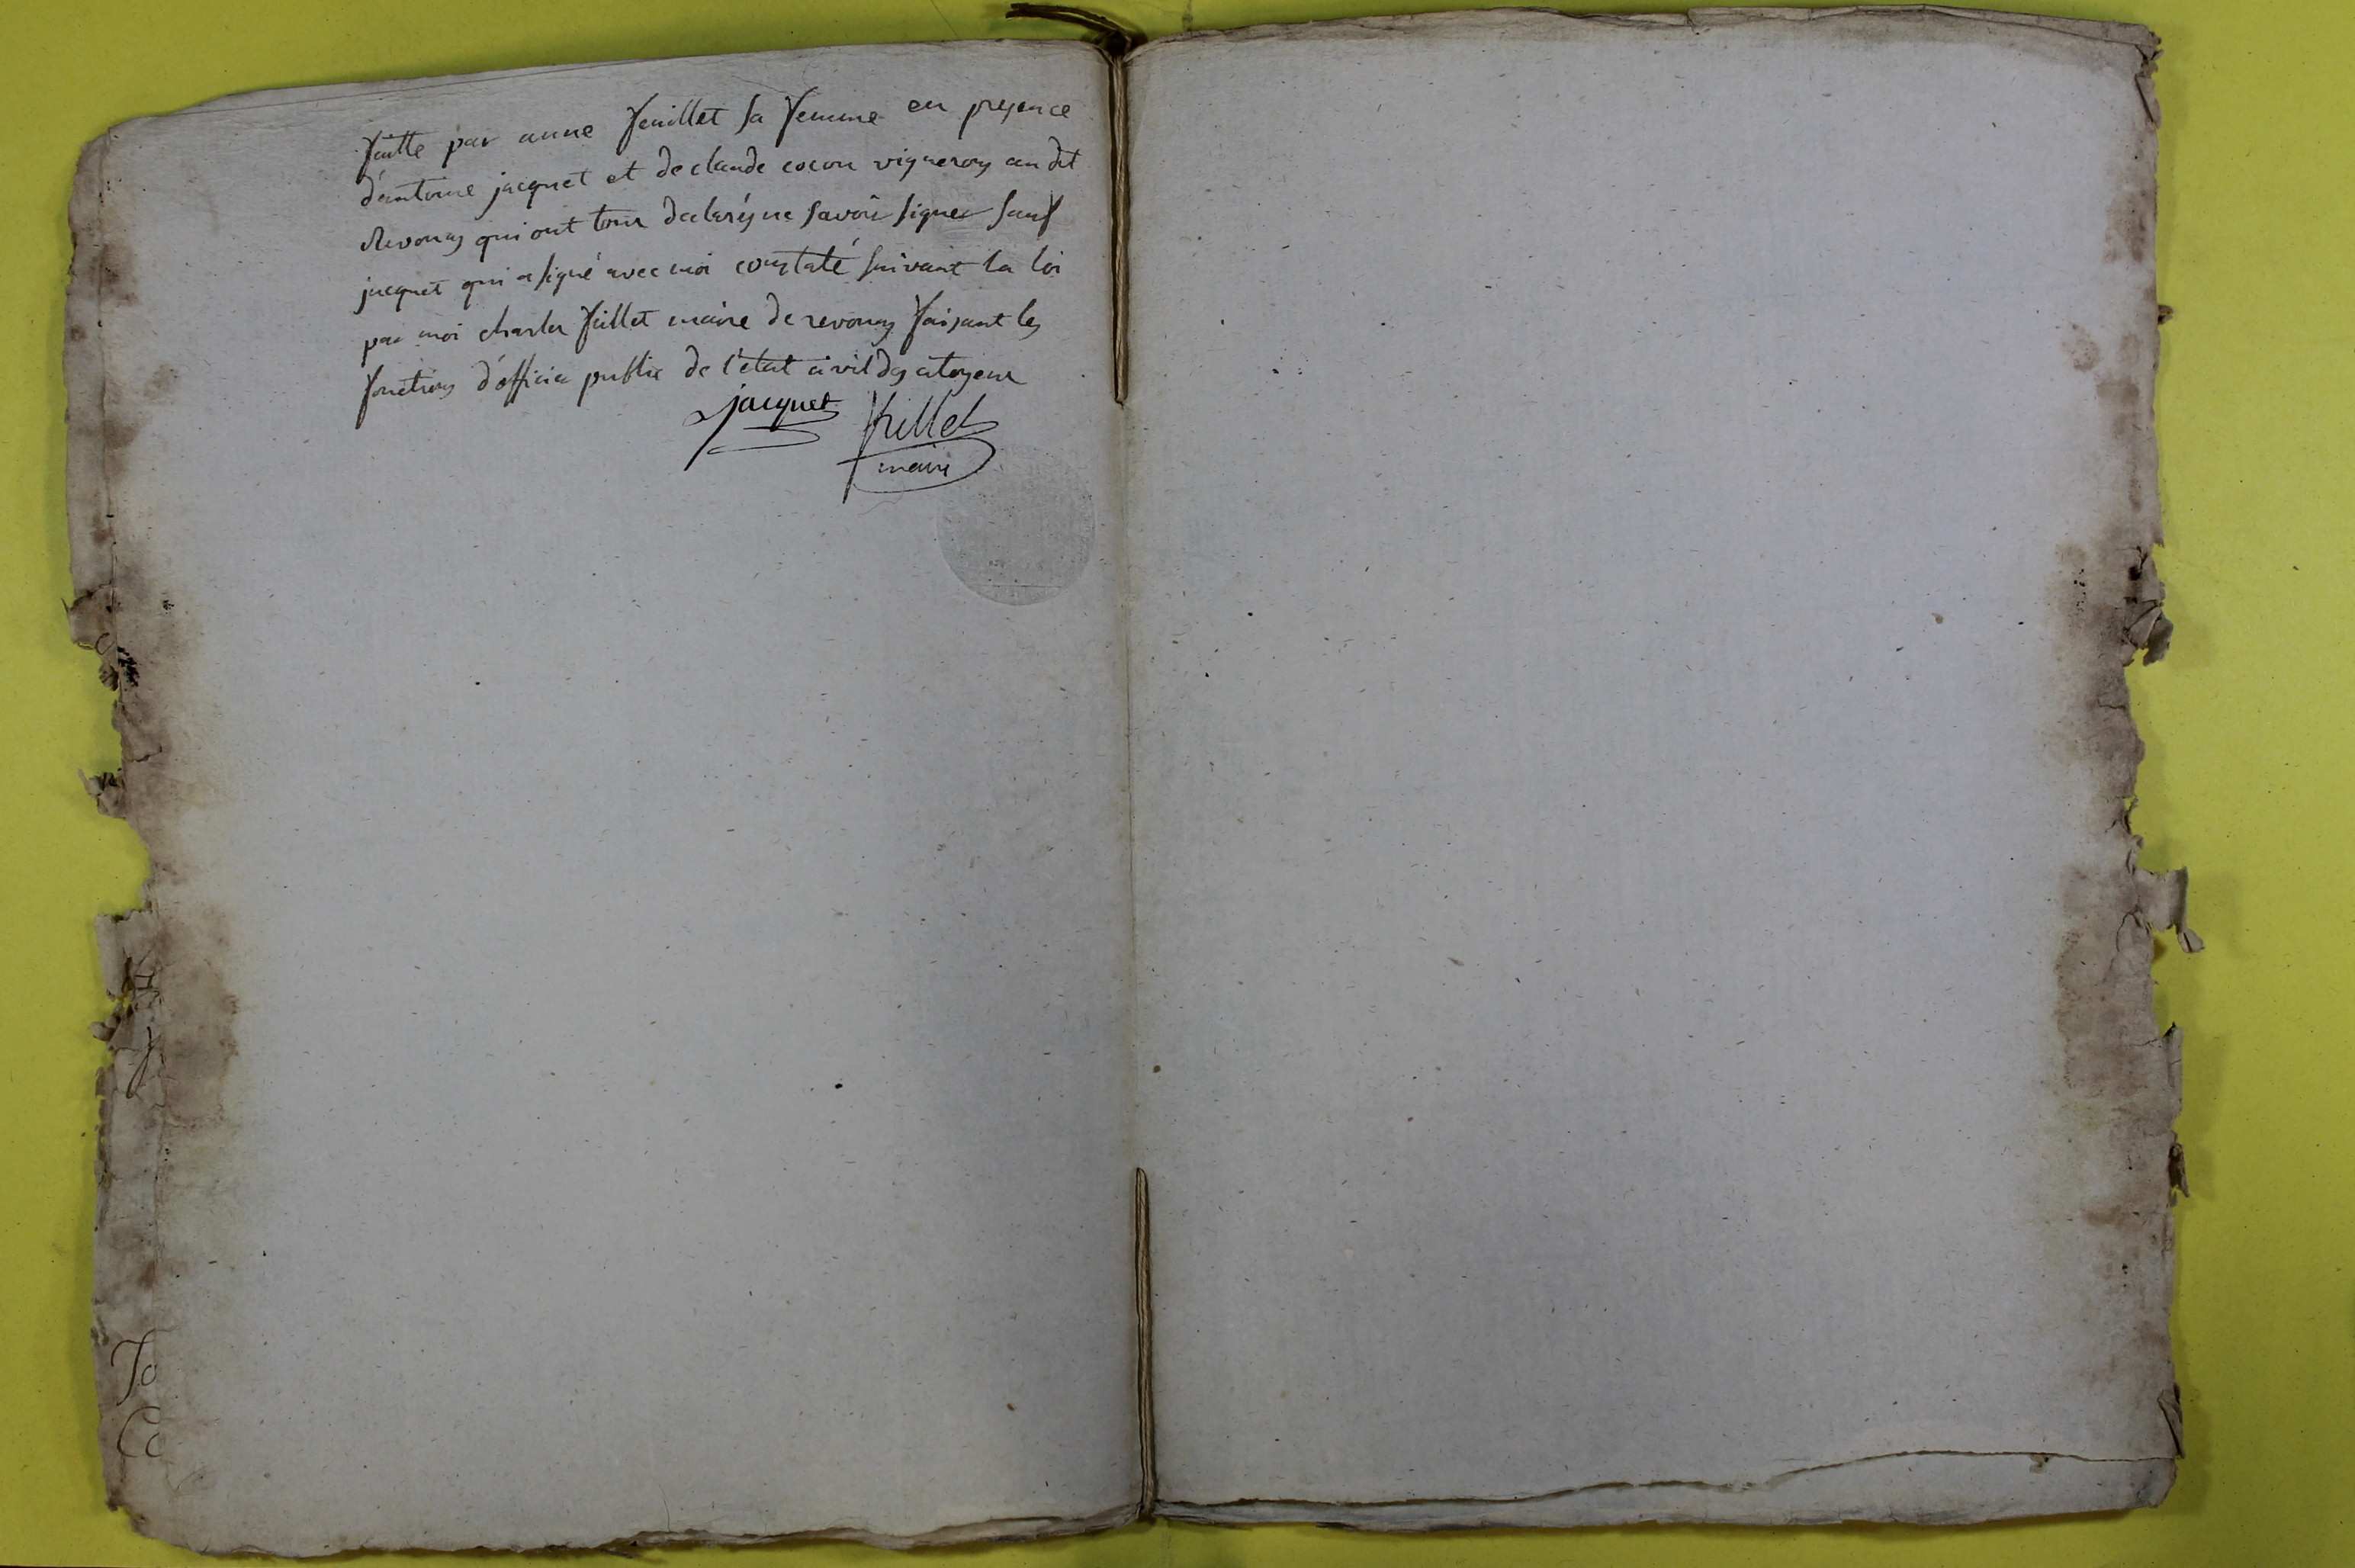 faitte par anne feuillet sa femme en presence
d'antoine jacquet et de claude cocon vignerons au dit
Revonas qui ont tous declarés ne savoir signer sauf
jacquet qui a signé avec moi constaté suivant la loi
par moi charles fillet maire de revonas faisant les
fonctions d'officier public de l'état civil des citoyens
jacquet fillet
maire
Jo
Co